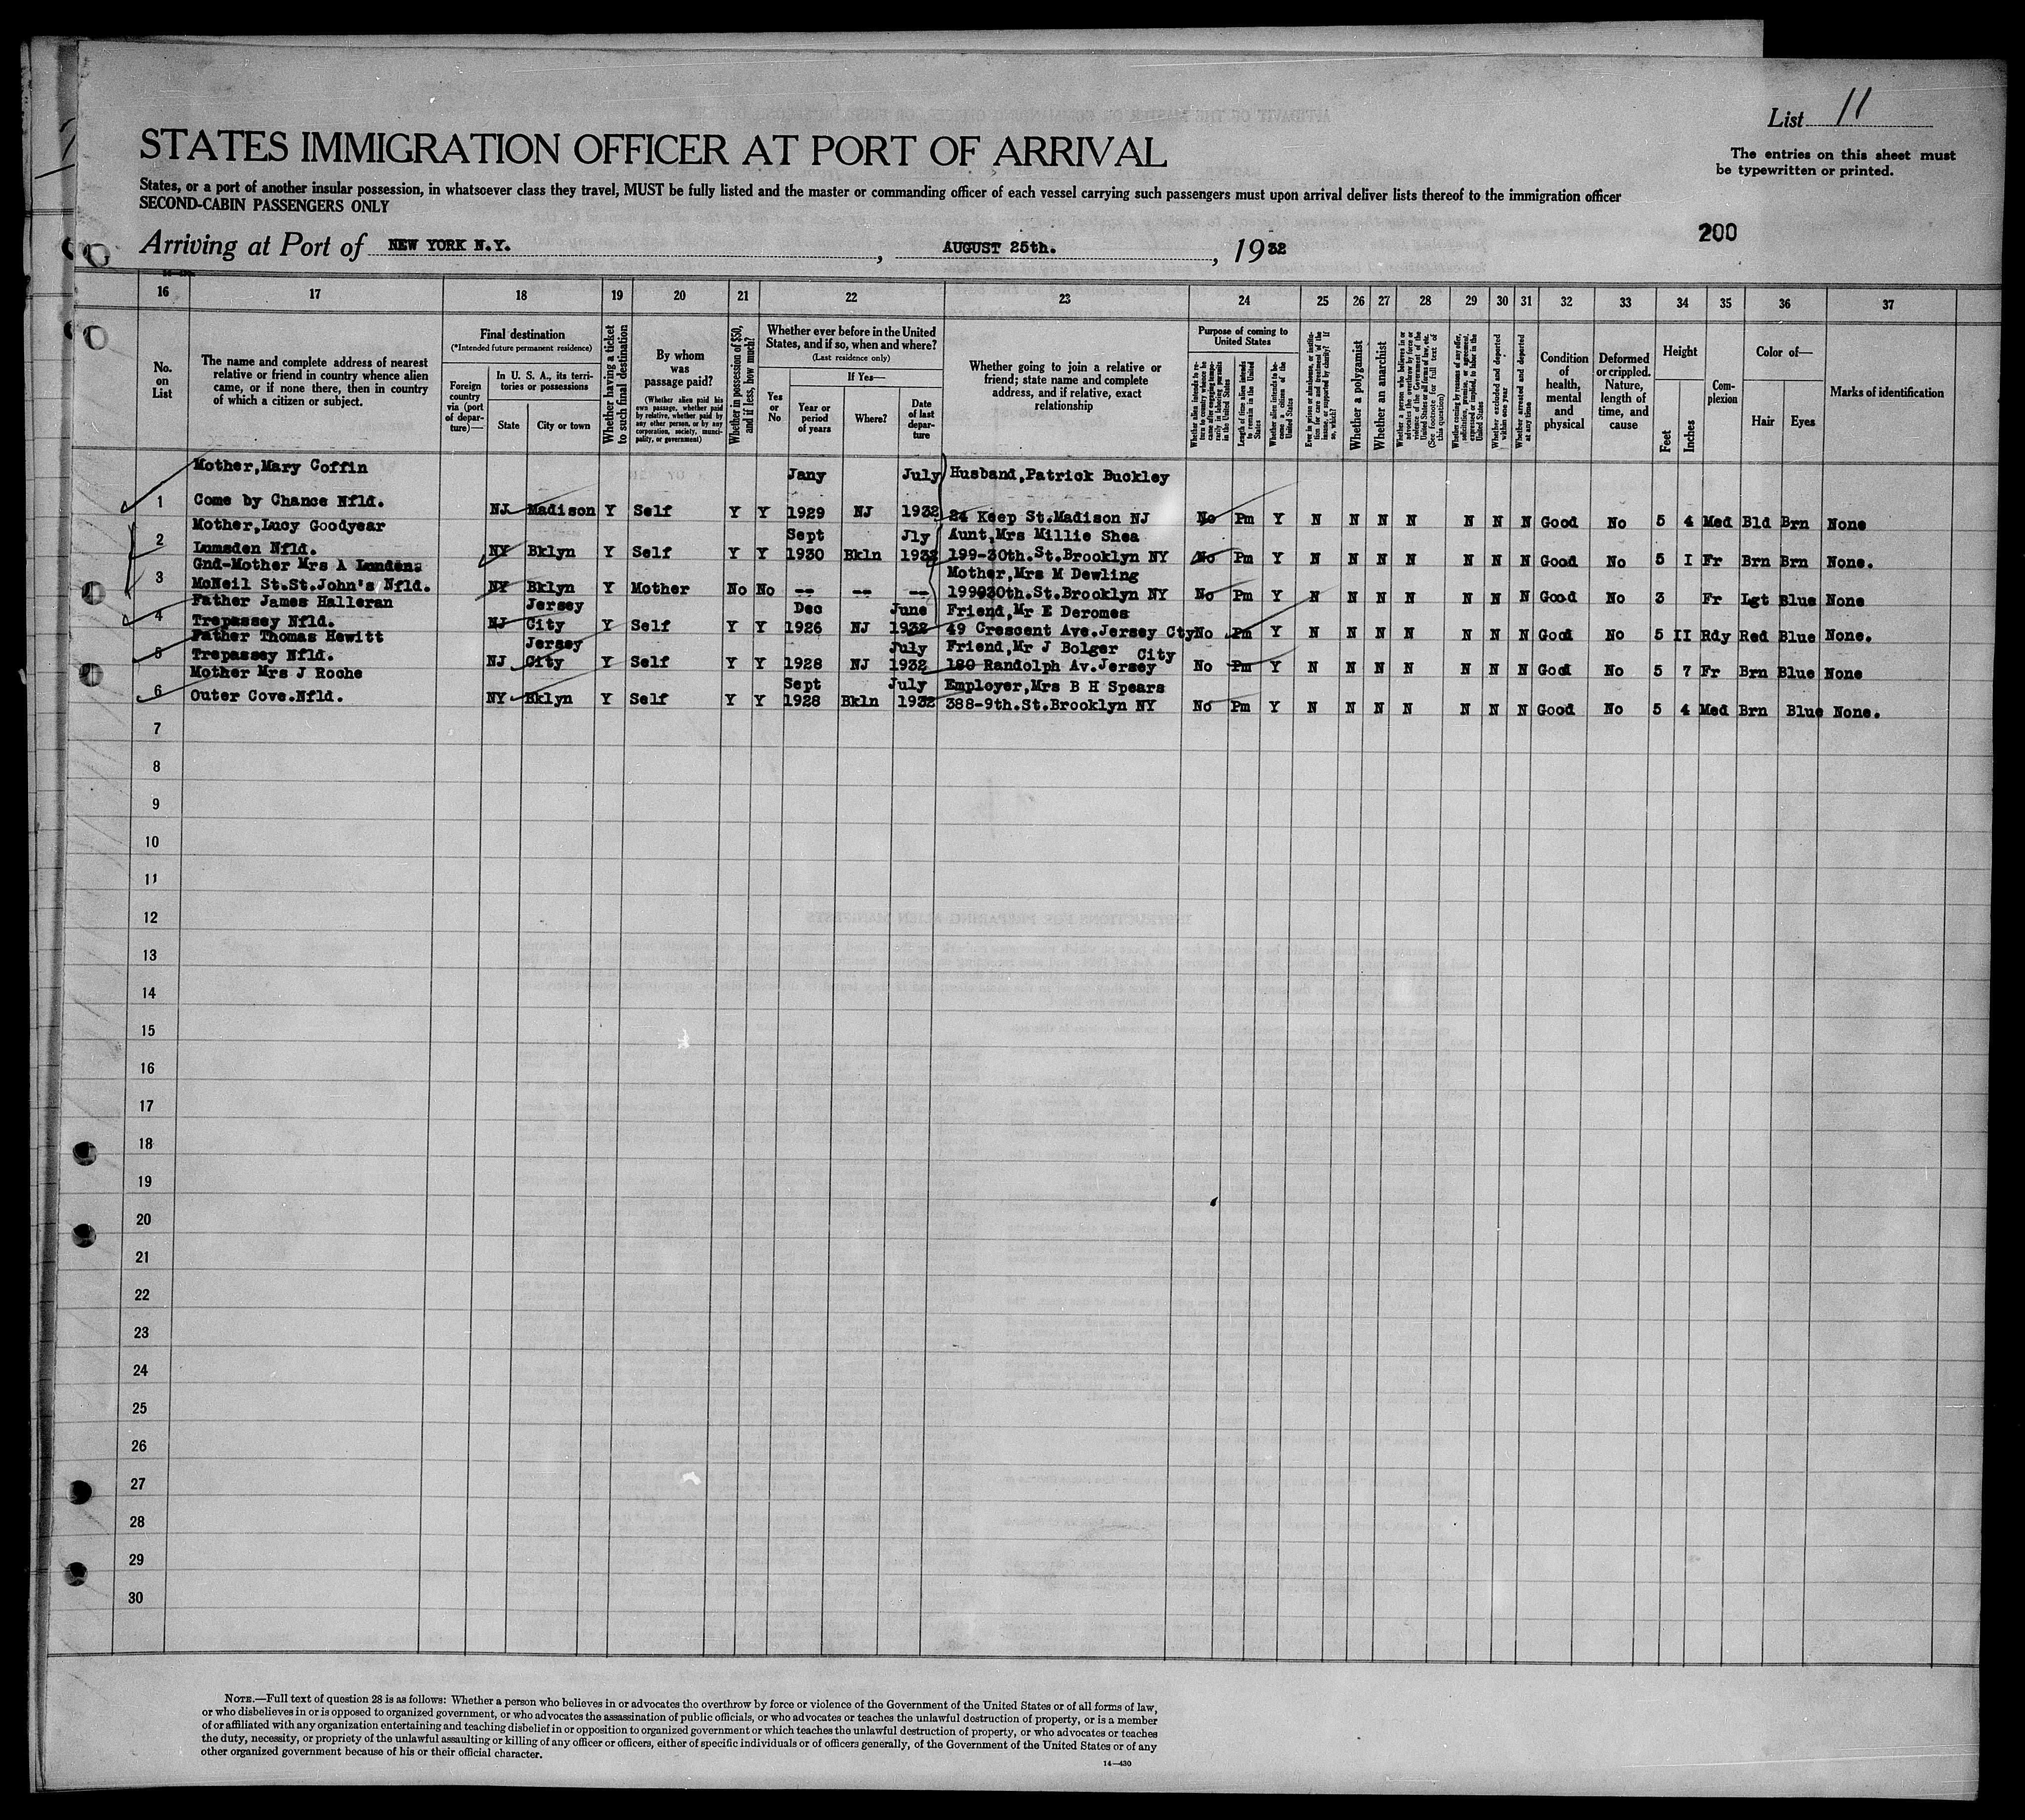 List 11
STATES IMMIGRATION OFFICER AT PORT OF ARRIVAL
The entries on this sheet must
be typewritten or printed.
States, or a port of another insular possession, in whatsoever class they travel, MUST be fully listed and the master or commanding officer of each vessel carrying such passengers must upon arrival deliver lists thereof to the immigration officer
SECOND-CABIN PASSENGERS ONLY
200
Arriving at Port of NEW YORK N.Y., AUGUST 25th., 1932
16 17 18 19 20 21 22 23 24 25 26 27 28 29 30 31 32 33 34 35 36 37
No. on List
The name and complete address of nearest
relative or friend in country whence alien
came, or if none there, then in country
of which a citizen or subject.
Final destination
(*Intended future permanent residence)
Foreign country via (port of departure)—
In U. S. A., its territories or possessions
State
City or town
Whether having a ticket to such final destination
By whom was passage paid?
(Whether alien paid his own passage, whether paid by relative, whether paid by any other person, or by any corporation, society, municipality, or government)
Whether in possession of $50, and if less, how much?
Whether ever before in the United States, and if so, when and where?
(Last residence only)
Yes or No
If Yes—
Year or period of years
Where?
Date of last departure
Whether going to join a relative or
friend; state name and complete
address, and if relative, exact
relationship
Purpose of coming to United States
Length of time alien intends to remain in the United States
Whether alien intends to become a citizen of the United States
Whether a polygamist
Whether an anarchist
Whether excluded and deported within one year
Whether arrested and deported at any time
Condition of health, mental and physical
Deformed or crippled. Nature, length of time, and cause
Height
Feet
Inches
Complexion
Color of—
Hair
Eyes
Marks of identification
Mother,Mary Coffin Jany July Husband,Patrick Buckley
1 Come by Chance Nfld. NJ Madison Y Self Y Y 1929 NJ 1932 24 Keep St.Madison NJ No Pm Y N N N N N N N Good No 5 4 Med Bld Brn None
Mother,Lucy Goodyear Sept Jly Aunt,Mrs Millie Shea
2 Lumsden Nfld. NY Bklyn Y Self Y Y 1930 Bkln 1932 199-30th.St.Brooklyn NY No Pm Y N N N N N N N Good No 5 I Fr Brn Brn None.
Gnd-Mother Mrs A Lundens Mother,Mrs M Dewling
3 McNeil St.St.John's Nfld. NY Bklyn Y Mother No No -- -- -- 199-30th.St.Brooklyn NY No Pm Y N N N N N N N Good No 3 Fr Lgt Blue None
Father James Halleran Jersey Dec June Friend,Mr E Deromes
4 Trepassey Nfld. NJ City Y Self Y Y 1926 NJ 1932 49 Crescent Ave.Jersey Cty No Pm Y N N N N N N N Good No 5 II Rdy Red Blue None.
Father Thomas Hewitt Jersey July Friend,Mr J Bolger City
5 Trepassey Nfld. NJ City Y Self Y Y 1928 NJ 1932 180 Randolph Av.Jersey No Pm Y N N N N N N N Good No 5 7 Fr Brn Blue None
Mother Mrs J Roche Sept July Employer,Mrs B H Spears
6 Outer Cove.Nfld. NY Bklyn Y Self Y Y 1928 Bkln 1932 388-9th.St.Brooklyn NY No Pm Y N N N N N N N Good No 5 4 Med Brn Blue None.
7
8
9
10
11
12
13
14
15
16
17
18
19
20
21
22
23
24
25
26
27
28
29
30
NOTE.—Full text of question 28 is as follows: Whether a person who believes in or advocates the overthrow by force or violence of the Government of the United States or of all forms of law,
or who disbelieves in or is opposed to organized government, or who advocates the assassination of public officials, or who advocates or teaches the unlawful destruction of property, or is a member
of or affiliated with any organization entertaining and teaching disbelief in or opposition to organized government or which teaches the unlawful destruction of property, or who advocates or teaches
the duty, necessity, or propriety of the unlawful assaulting or killing of any officer or officers, either of specific individuals or of officers generally, of the Government of the United States or of any
other organized government because of his or their official character.
14—430